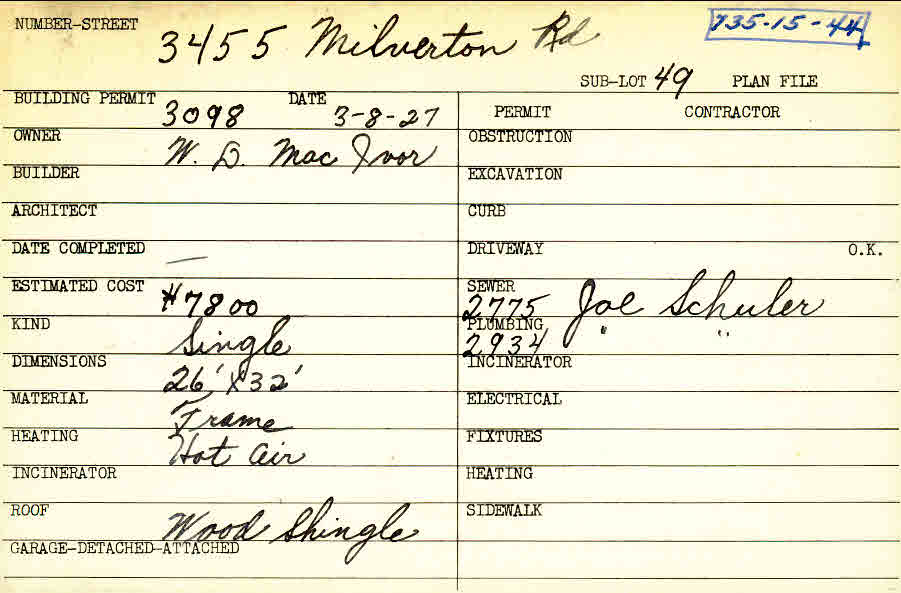 NUMBER-STREET 3455 Milverton Rd 735-15-44
SUB-LOT 49 PLAN FILE
BUILDING PERMIT 3098 DATE 3-8-27
PERMIT CONTRACTOR
OWNER W. D. Mac Ivor
OBSTRUCTION
BUILDER
EXCAVATION
ARCHITECT
CURB
DATE COMPLETED —
DRIVEWAY O.K.
ESTIMATED COST $7800
SEWER 2775 Joe Schuler
KIND Single
PLUMBING 2934 " "
DIMENSIONS 26' X 32'
INCINERATOR
MATERIAL Frame
ELECTRICAL
HEATING Hot Air
FIXTURES
INCINERATOR
HEATING
ROOF Wood Shingle
SIDEWALK
GARAGE-DETACHED-ATTACHED